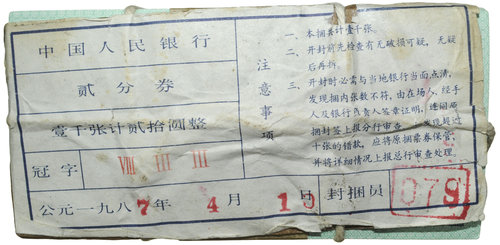 中国人民银行
贰分券
壹千张计贰拾圆整
冠字 VIII III III
公元一九八7年 4月 10日 封捆员
079
注意事项
一、本捆共计壹千张。
二、开封前先检查有无破损可疑，无疑
后再拆。
三、开封时必需与当地银行当面点清，
发现捆内张数不符，由在场人、经手
人及银行负责人签章证明，连同原
捆封签上报分行审查
十张的错款，应将原捆票券保管，
并将详细情况上报总行审查处理。